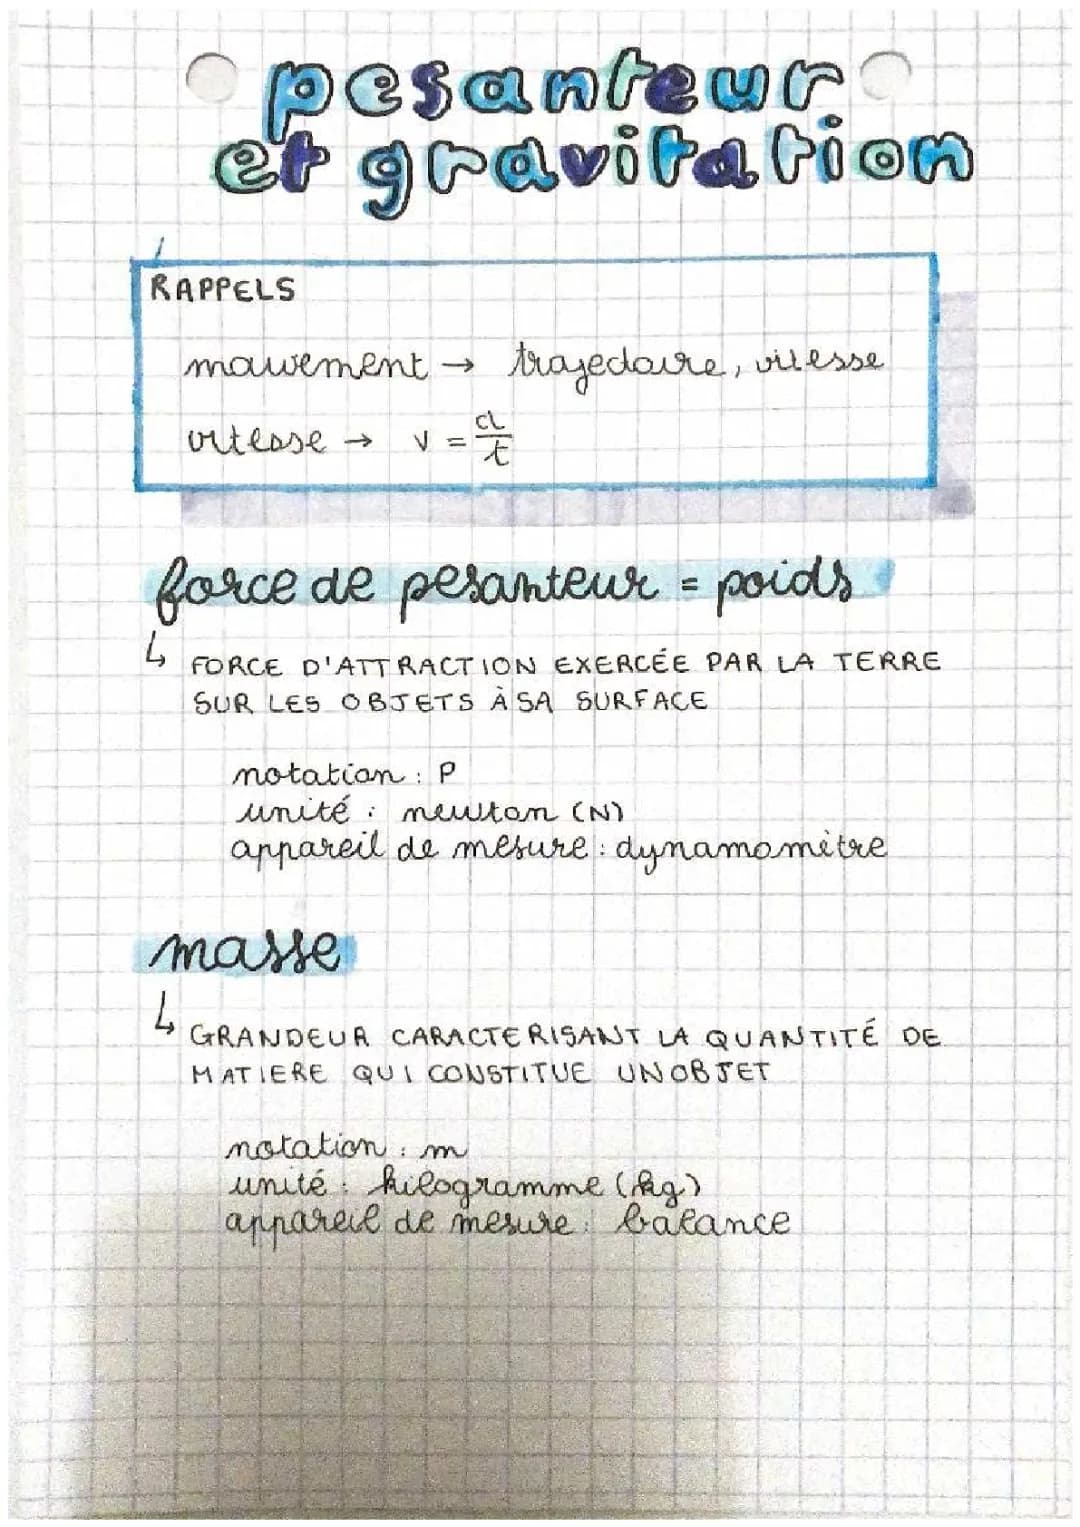 pesanteur
et gravitation
RAPPELS
mouvement → trajectoire, vitesse
vitesse → v = d/t
force de pesanteur = poids
↳ FORCE D'ATTRACTION EXERCÉE PAR LA TERRE
SUR LES OBJETS À SA SURFACE
notation : P
unité : newton (N)
appareil de mesure : dynamomètre
masse
↳ GRANDEUR CARACTERISANT LA QUANTITÉ DE
MATIERE QUI CONSTITUE UN OBJET
notation : m
unité : kilogramme (kg)
appareil de mesure : balance